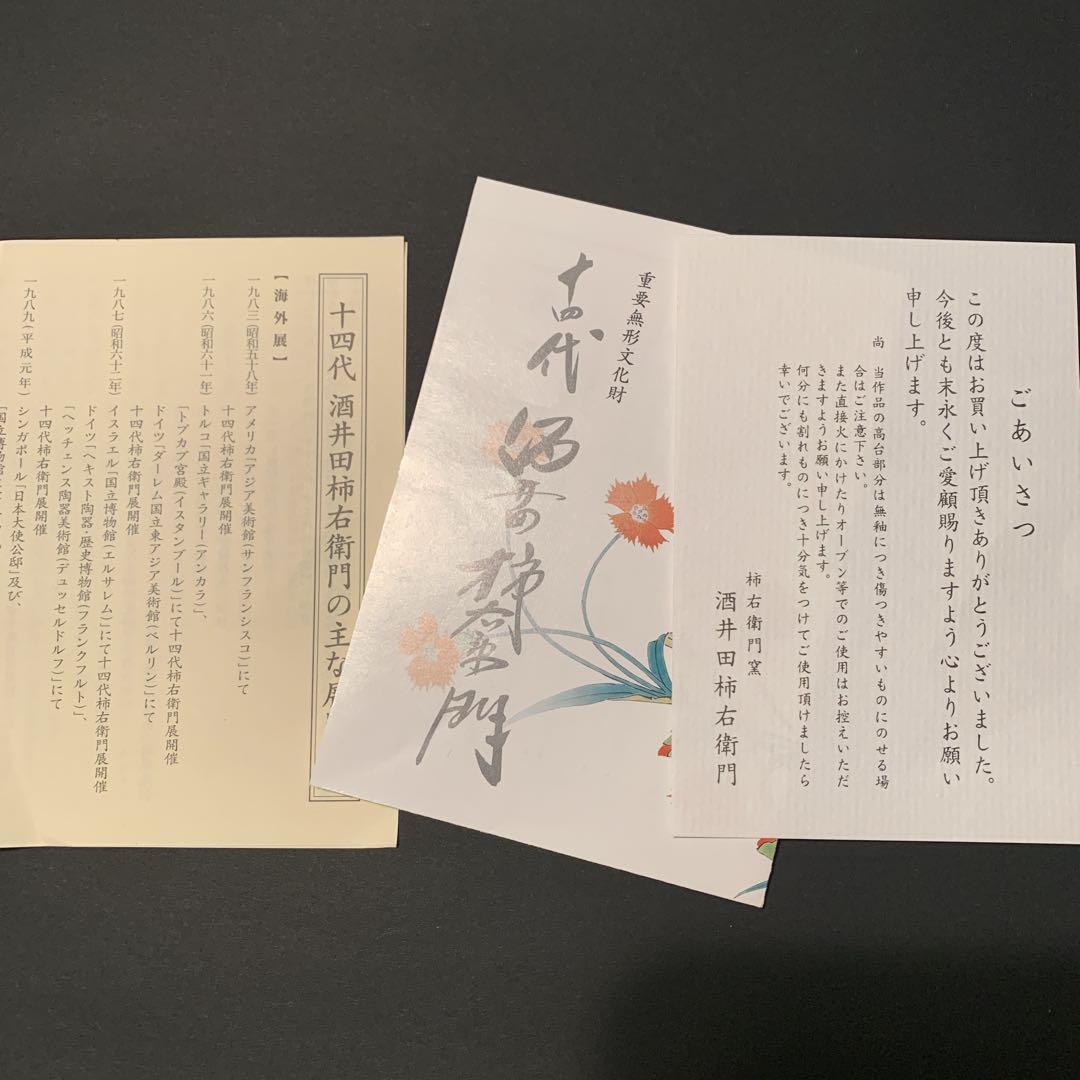 ごあいさつ
この度はお買い上げ頂きありがとうございました。
今後とも末永くご愛顧賜りますよう心よりお願い
申し上げます。
尚 当作品の高台部分は無釉につき傷つきやすいものにのせる場
合はご注意下さい。
また直接火にかけたりオーブン等でのご使用はお控えいただ
きますようお願い申し上げます。
何分にも割れものにつき十分気をつけてご使用頂けましたら
幸いでございます。
柿右衛門窯
酒井田柿右衛門
重要無形文化財
十四代 酒井田柿右衛門
十四代 酒井田柿右衛門の主な
【海外展】
一九八三(昭和五十八年) アメリカ「アジア美術館(サンフランシスコ)」にて
十四代柿右衛門展開催
一九八六(昭和六十一年) トルコ「国立ギャラリー(アンカラ)」、
「トプカプ宮殿(イスタンブール)」にて十四代柿右衛門展開催
ドイツ「ダーレム国立東アジア美術館(ベルリン)」にて
十四代柿右衛門展開催
一九八七(昭和六十二年) イスラエル「国立博物館(エルサレム)」にて十四代柿右衛門展開催
ドイツ「ヘキスト陶器・歴史博物館(フランクフルト)」、
「ヘッチェンス陶器美術館(デュッセルドルフ)」にて
十四代柿右衛門展開催
一九八九(平成元年) シンガポール「日本大使公邸」及び、
「国立博物館